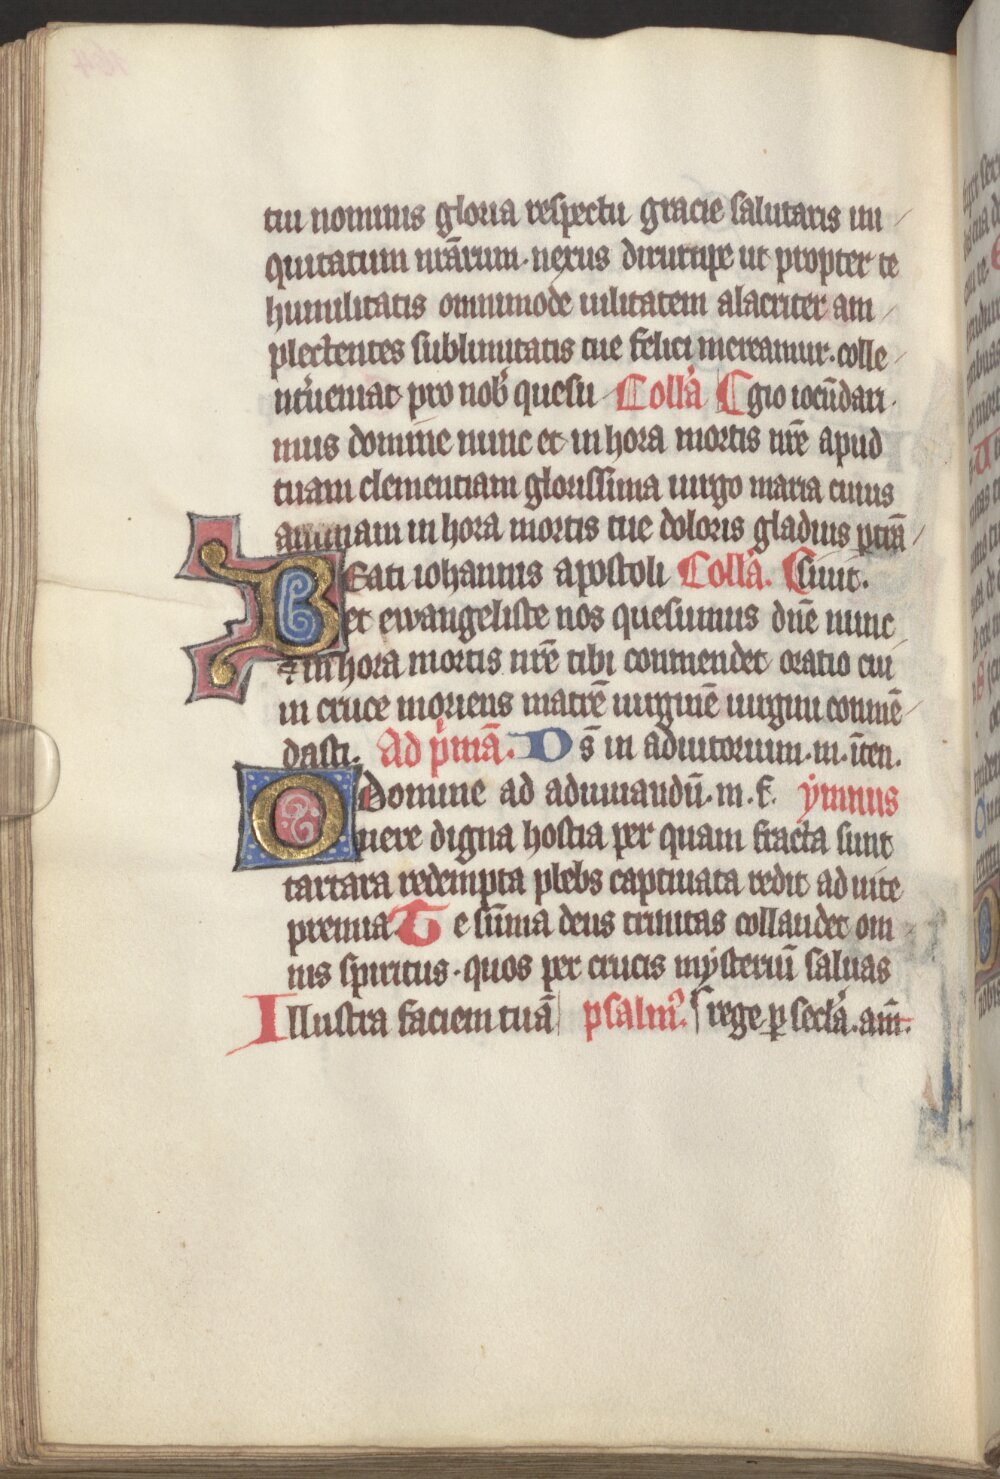 tui nominis gloria respectu gracie salutaris ini
quitatum nr̄arum. nexus dirumpe ut propter te
humilitatis omnimode uilitatem alacriter am
plectentes sublimitatis tue felici mereamur. colle
pro nob' quesu Coll'a
mus domine nunc et in hora mortis nr̄e apud
tuam clementiam gloriissima uirgo maria cuius
animam in hora mortis tue doloris gladius
Beati iohannis apostoli Coll'a.
et ewangeliste nos quesumus dn̄e nunc
⁊ in hora mortis nr̄e tibi conmendet oratio cui
in cruce moriens matrē uirginē uirgini conmē
dasti. Ad p'mā. Ds̄ in adiutorium. m. īten.
Domine ad adiuuandū. m. f. ẏmnus
O uere digna hostia per quam fracta sunt
tartara redempta plebs captiuata redit ad uite
premia Te sūma deus trinitas collaudet om
nis spiritus. quos per crucis mẏsteriū saluas
rege p secla. am̄.
Illustra faciem tuā psalm'.